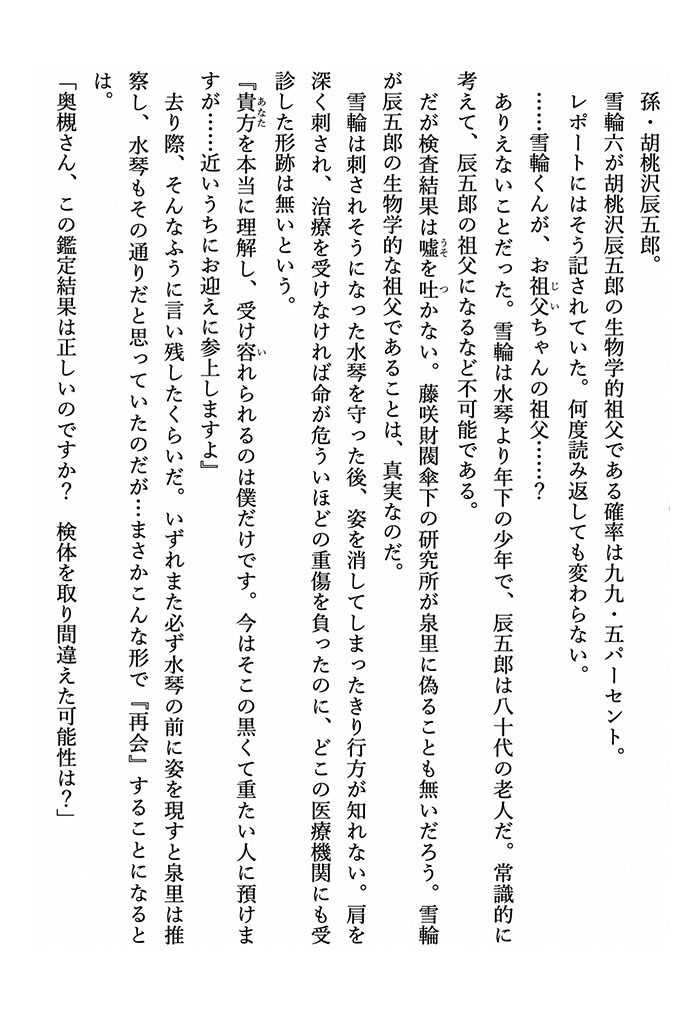 孫・胡桃沢辰五郎。
雪輪六が胡桃沢辰五郎の生物学的祖父である確率は九九・五パーセント。
レポートにはそう記されていた。何度読み返しても変わらない。
……雪輪くんが、お祖父ちゃんの祖父……？
ありえないことだった。雪輪は水琴より年下の少年で、辰五郎は八十代の老人だ。常識的に
考えて、辰五郎の祖父になるなど不可能である。
だが検査結果は嘘を吐かない。藤咲財閥傘下の研究所が泉里に偽ることも無いだろう。雪輪
が辰五郎の生物学的な祖父であることは、真実なのだ。
雪輪は刺されそうになった水琴を守った後、姿を消してしまったきり行方が知れない。肩を
深く刺され、治療を受けなければ命が危ういほどの重傷を負ったのに、どこの医療機関にも受
診した形跡は無いという。
『貴方を本当に理解し、受け容れられるのは僕だけです。今はそこの黒くて重たい人に預けま
すが……近いうちにお迎えに参上しますよ』
去り際、そんなふうに言い残したくらいだ。いずれまた必ず水琴の前に姿を現すと泉里は推
察し、水琴もその通りだと思っていたのだが…まさかこんな形で『再会』することになると
は。
「奥槻さん、この鑑定結果は正しいのですか？　検体を取り間違えた可能性は？」